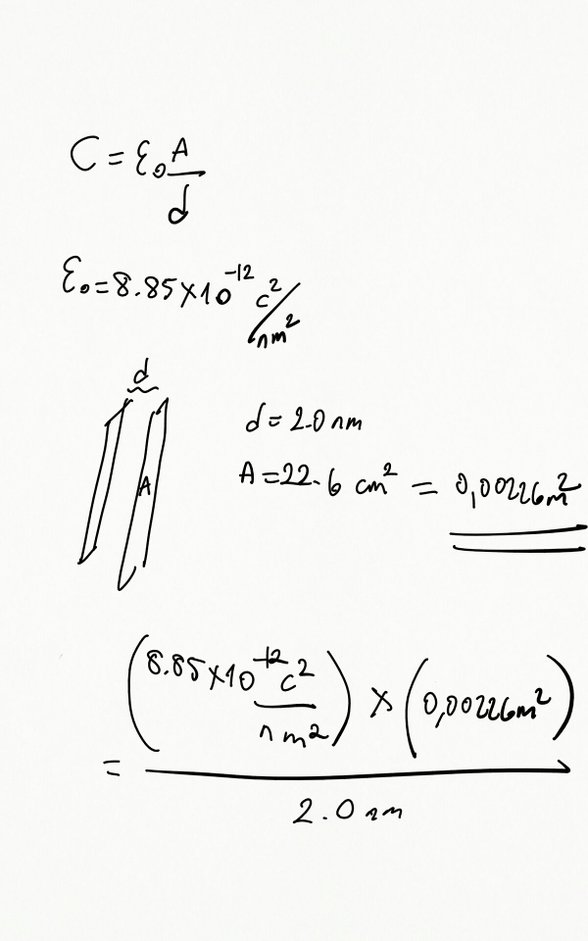 C = ε₀ A/d
ε₀ = 8.85×10⁻¹² c²/nm²
d
A
d = 2.0 nm
A = 22.6 cm² = 0,00226m²
= (8.85×10⁻¹² c²/nm²) × (0,00226m²)
2.0 nm